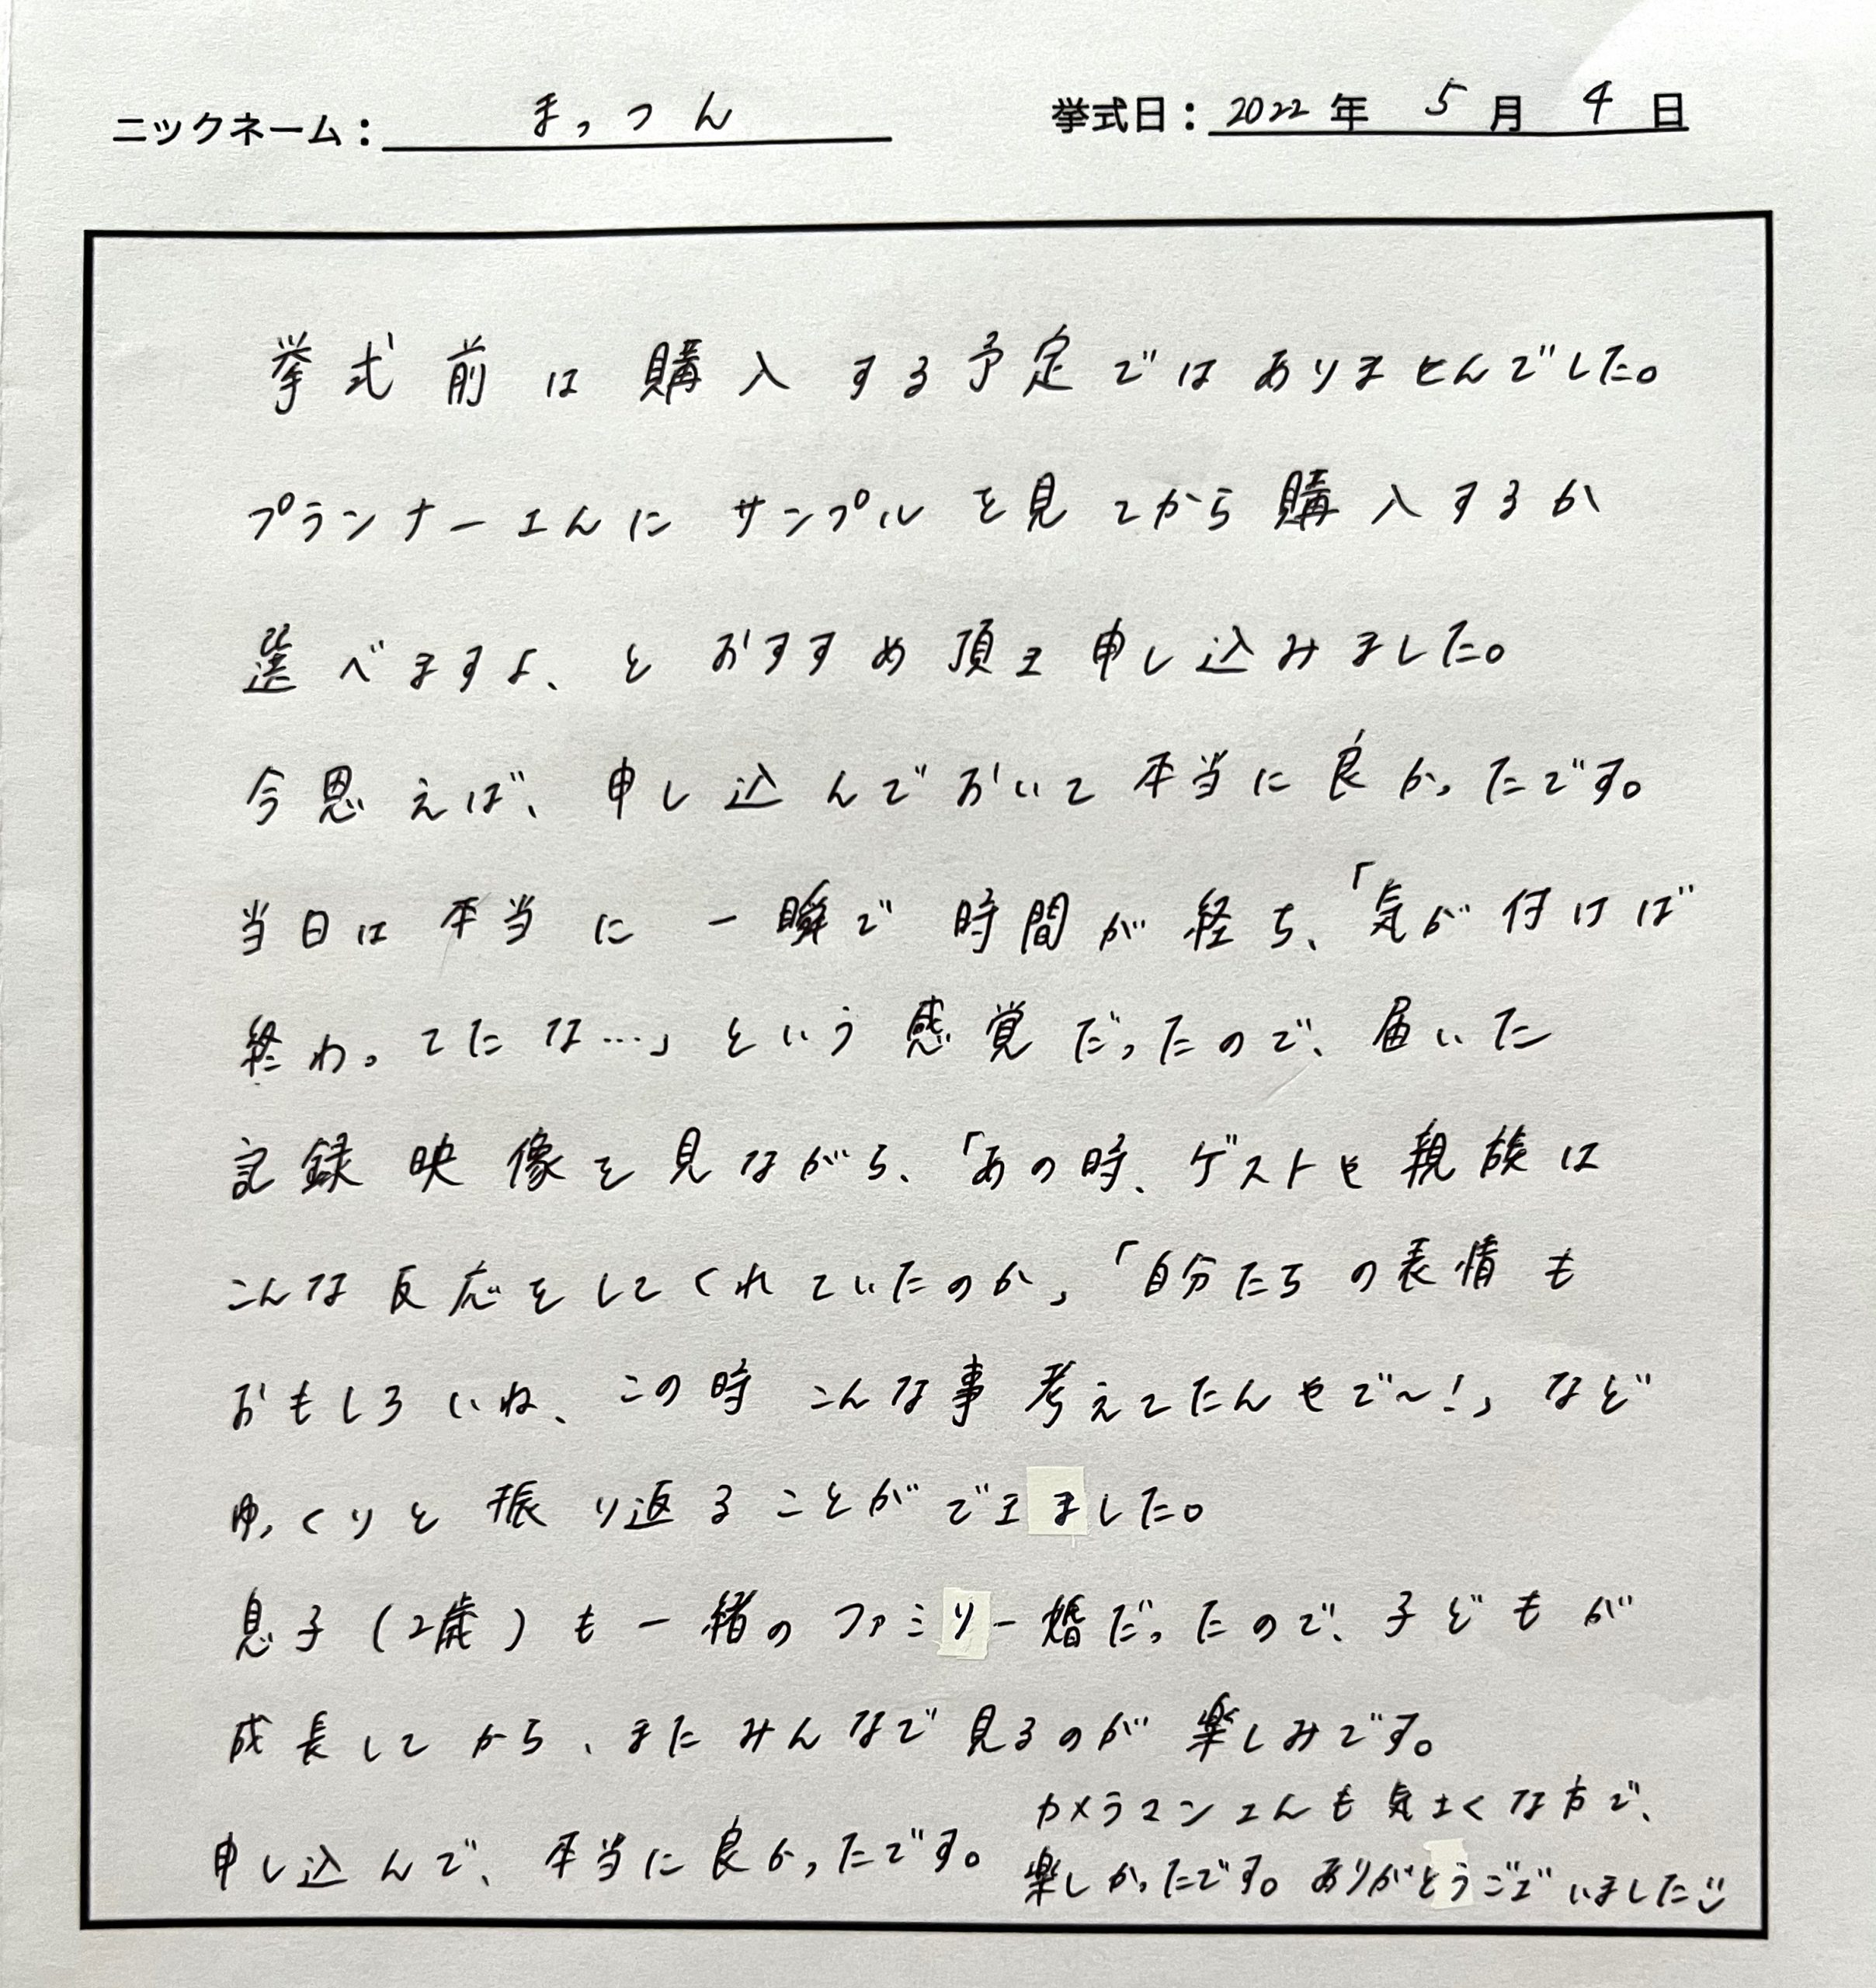 ニックネーム： まっつん 挙式日：2022年 5月 4日
挙式前は購入する予定ではありませんでした。
プランナーさんにサンプルを見てから購入するか
選べますよ、とおすすめ頂き申し込みました。
今思えば、申し込んでおいて本当に良かったです。
当日は本当に一瞬で時間が経ち、「気が付けば
終わってたな…」という感覚だったので、届いた
記録映像を見ながら、「あの時、ゲストや親族は
こんな反応をしてくれていたのか」「自分たちの表情も
おもしろいね、この時こんな事考えてたんやで～!」など
ゆっくりと振り返ることができました。
息子(2歳)も一緒のファミリー婚だったので、子どもが
成長してから、またみんなで見るのが楽しみです。
申し込んで、本当に良かったです。
カメラマンさんも気さくな方で、
楽しかったです。ありがとうございました